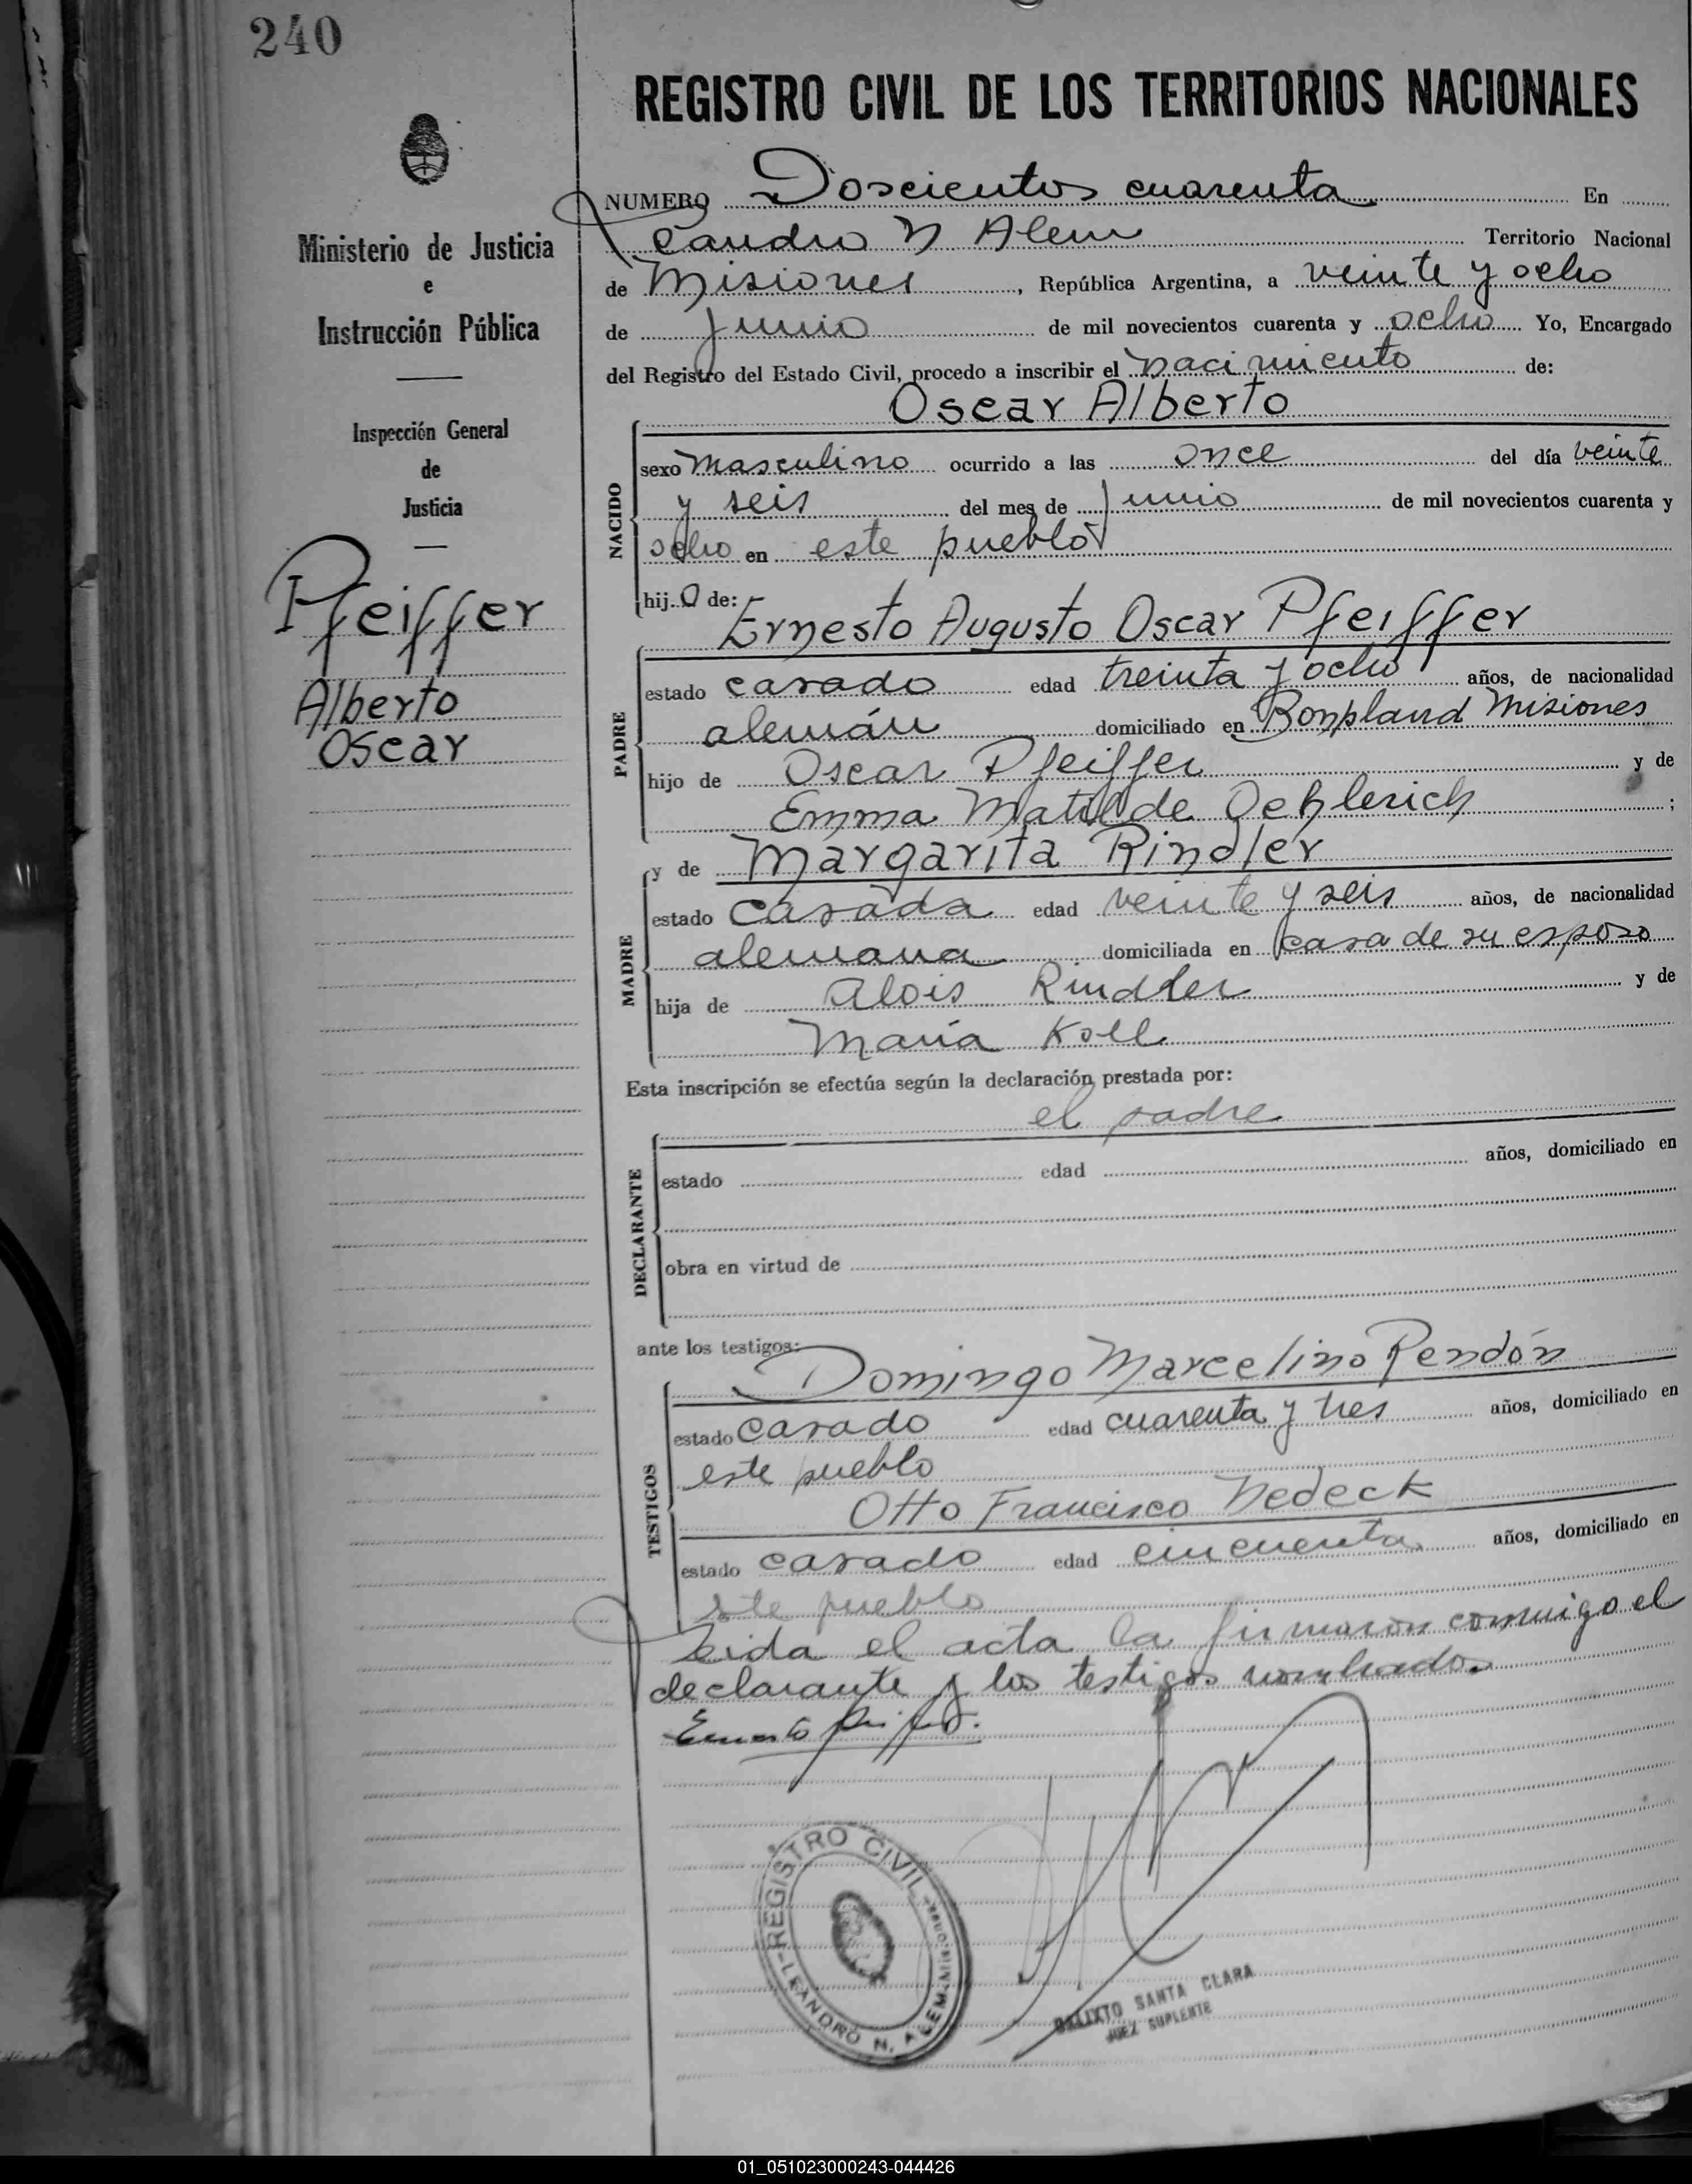 240
Ministerio de Justicia
e
Instrucción Pública
Inspección General
de
Justicia
Pfeiffer
Alberto
Oscar
REGISTRO CIVIL DE LOS TERRITORIOS NACIONALES
NUMERO Doscientos cuarenta En
Leandro N Alem Territorio Nacional
de Misiones, República Argentina, a veinte y ocho
de junio de mil novecientos cuarenta y ocho Yo, Encargado
del Registro del Estado Civil, procedo a inscribir el nacimiento de:
Oscar Alberto
NACIDO
sexo masculino ocurrido a las once del día veinte
y seis del mes de junio de mil novecientos cuarenta y
ocho en este pueblo
hijo de:
Ernesto Augusto Oscar Pfeiffer
PADRE
estado casado edad treinta y ocho años, de nacionalidad
alemán domiciliado en Bonpland Misiones
hijo de Oscar Pfeiffer y de
Emma Matilde Oehlerich ;
y de Margarita Rindler
MADRE
estado casada edad veinte y seis años, de nacionalidad
alemana domiciliada en casa de su esposo
hija de Alois Rindler y de
María Koll
Esta inscripción se efectúa según la declaración prestada por:
el padre
DECLARANTE
estado edad años, domiciliado en
obra en virtud de
ante los testigos:
Domingo Marcelino Rendón
TESTIGOS
estado casado edad cuarenta y tres años, domiciliado en
este pueblo
Otto Francisco Nedeck
estado casado edad cincuenta años, domiciliado en
este pueblo
Leida el acta la firmaron conmigo el
declarante y los testigos nombrados
Ernesto Pfeiffer.
REGISTRO CIVIL
LEANDRO N. ALEM-Misiones
CALIXTO SANTA CLARA
JUEZ SUPLENTE
01_051023000243-044426